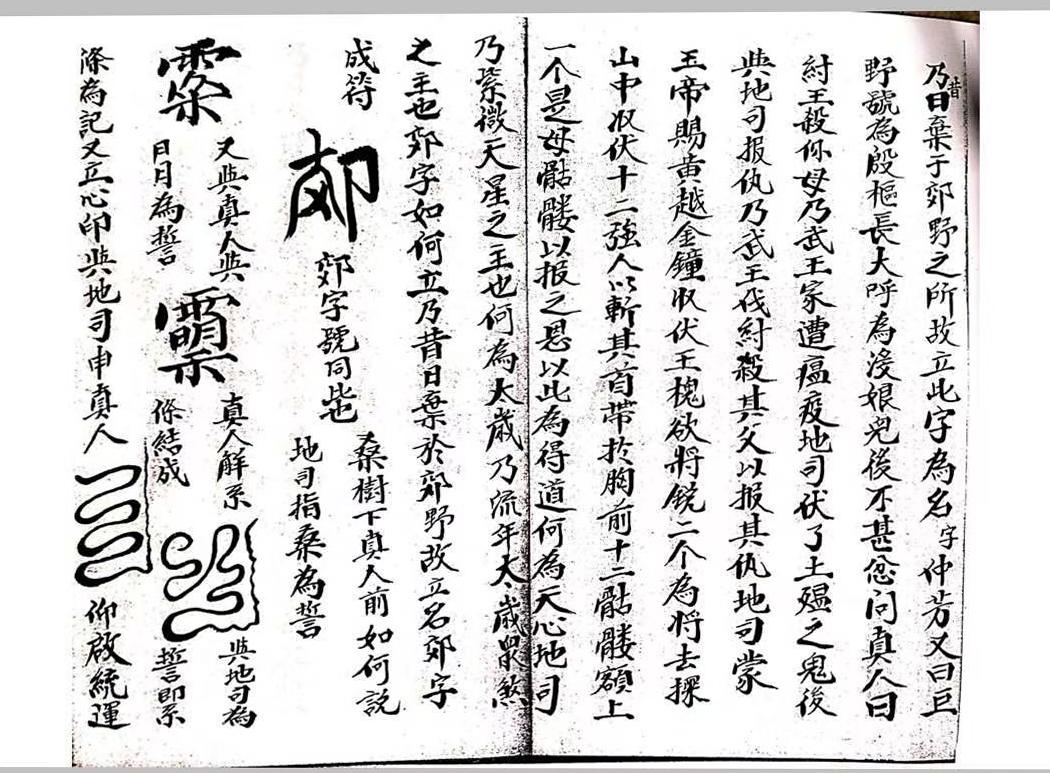 乃昔日棄于郊野之所故立此字為名字仲芳又曰巨
野號為殷樞長大呼為沒娘兒後不甚忿问真人曰
紂王殺你母乃武王家遭瘟疫地司伏了土瘟之鬼後
與地司报仇乃武王伐紂殺其父以报其仇地司蒙
玉帝賜黃越金鐘收伏王槐欲將鐃二个為將去探
山中收伏十二強人以斬其首帶於胸前十二骷髏額上
一个是母骷髏以报之恩以此為得道何為天心地司
乃紫微天星之主也何為太歲乃流年太歲眾煞
之主也郊字如何立乃昔日棄於郊野故立名郊字
成符
郊字號同此也
桑樹下真人前如何説
地司指桑為誓
又與真人與
日月為誓
真人解系
條結成
與地司為
誓即系
條為記又立心印與地司申真人
仰啟統運